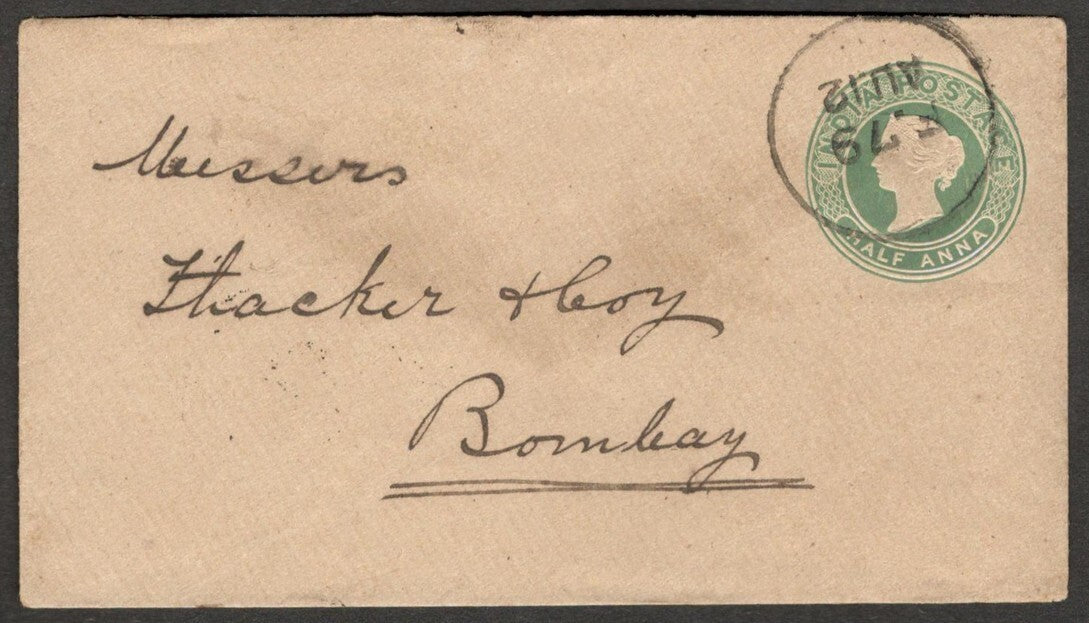 Messers
Thacker & Coy
Bombay
INDIA POSTAGE
HALF ANNA
AU 12
79